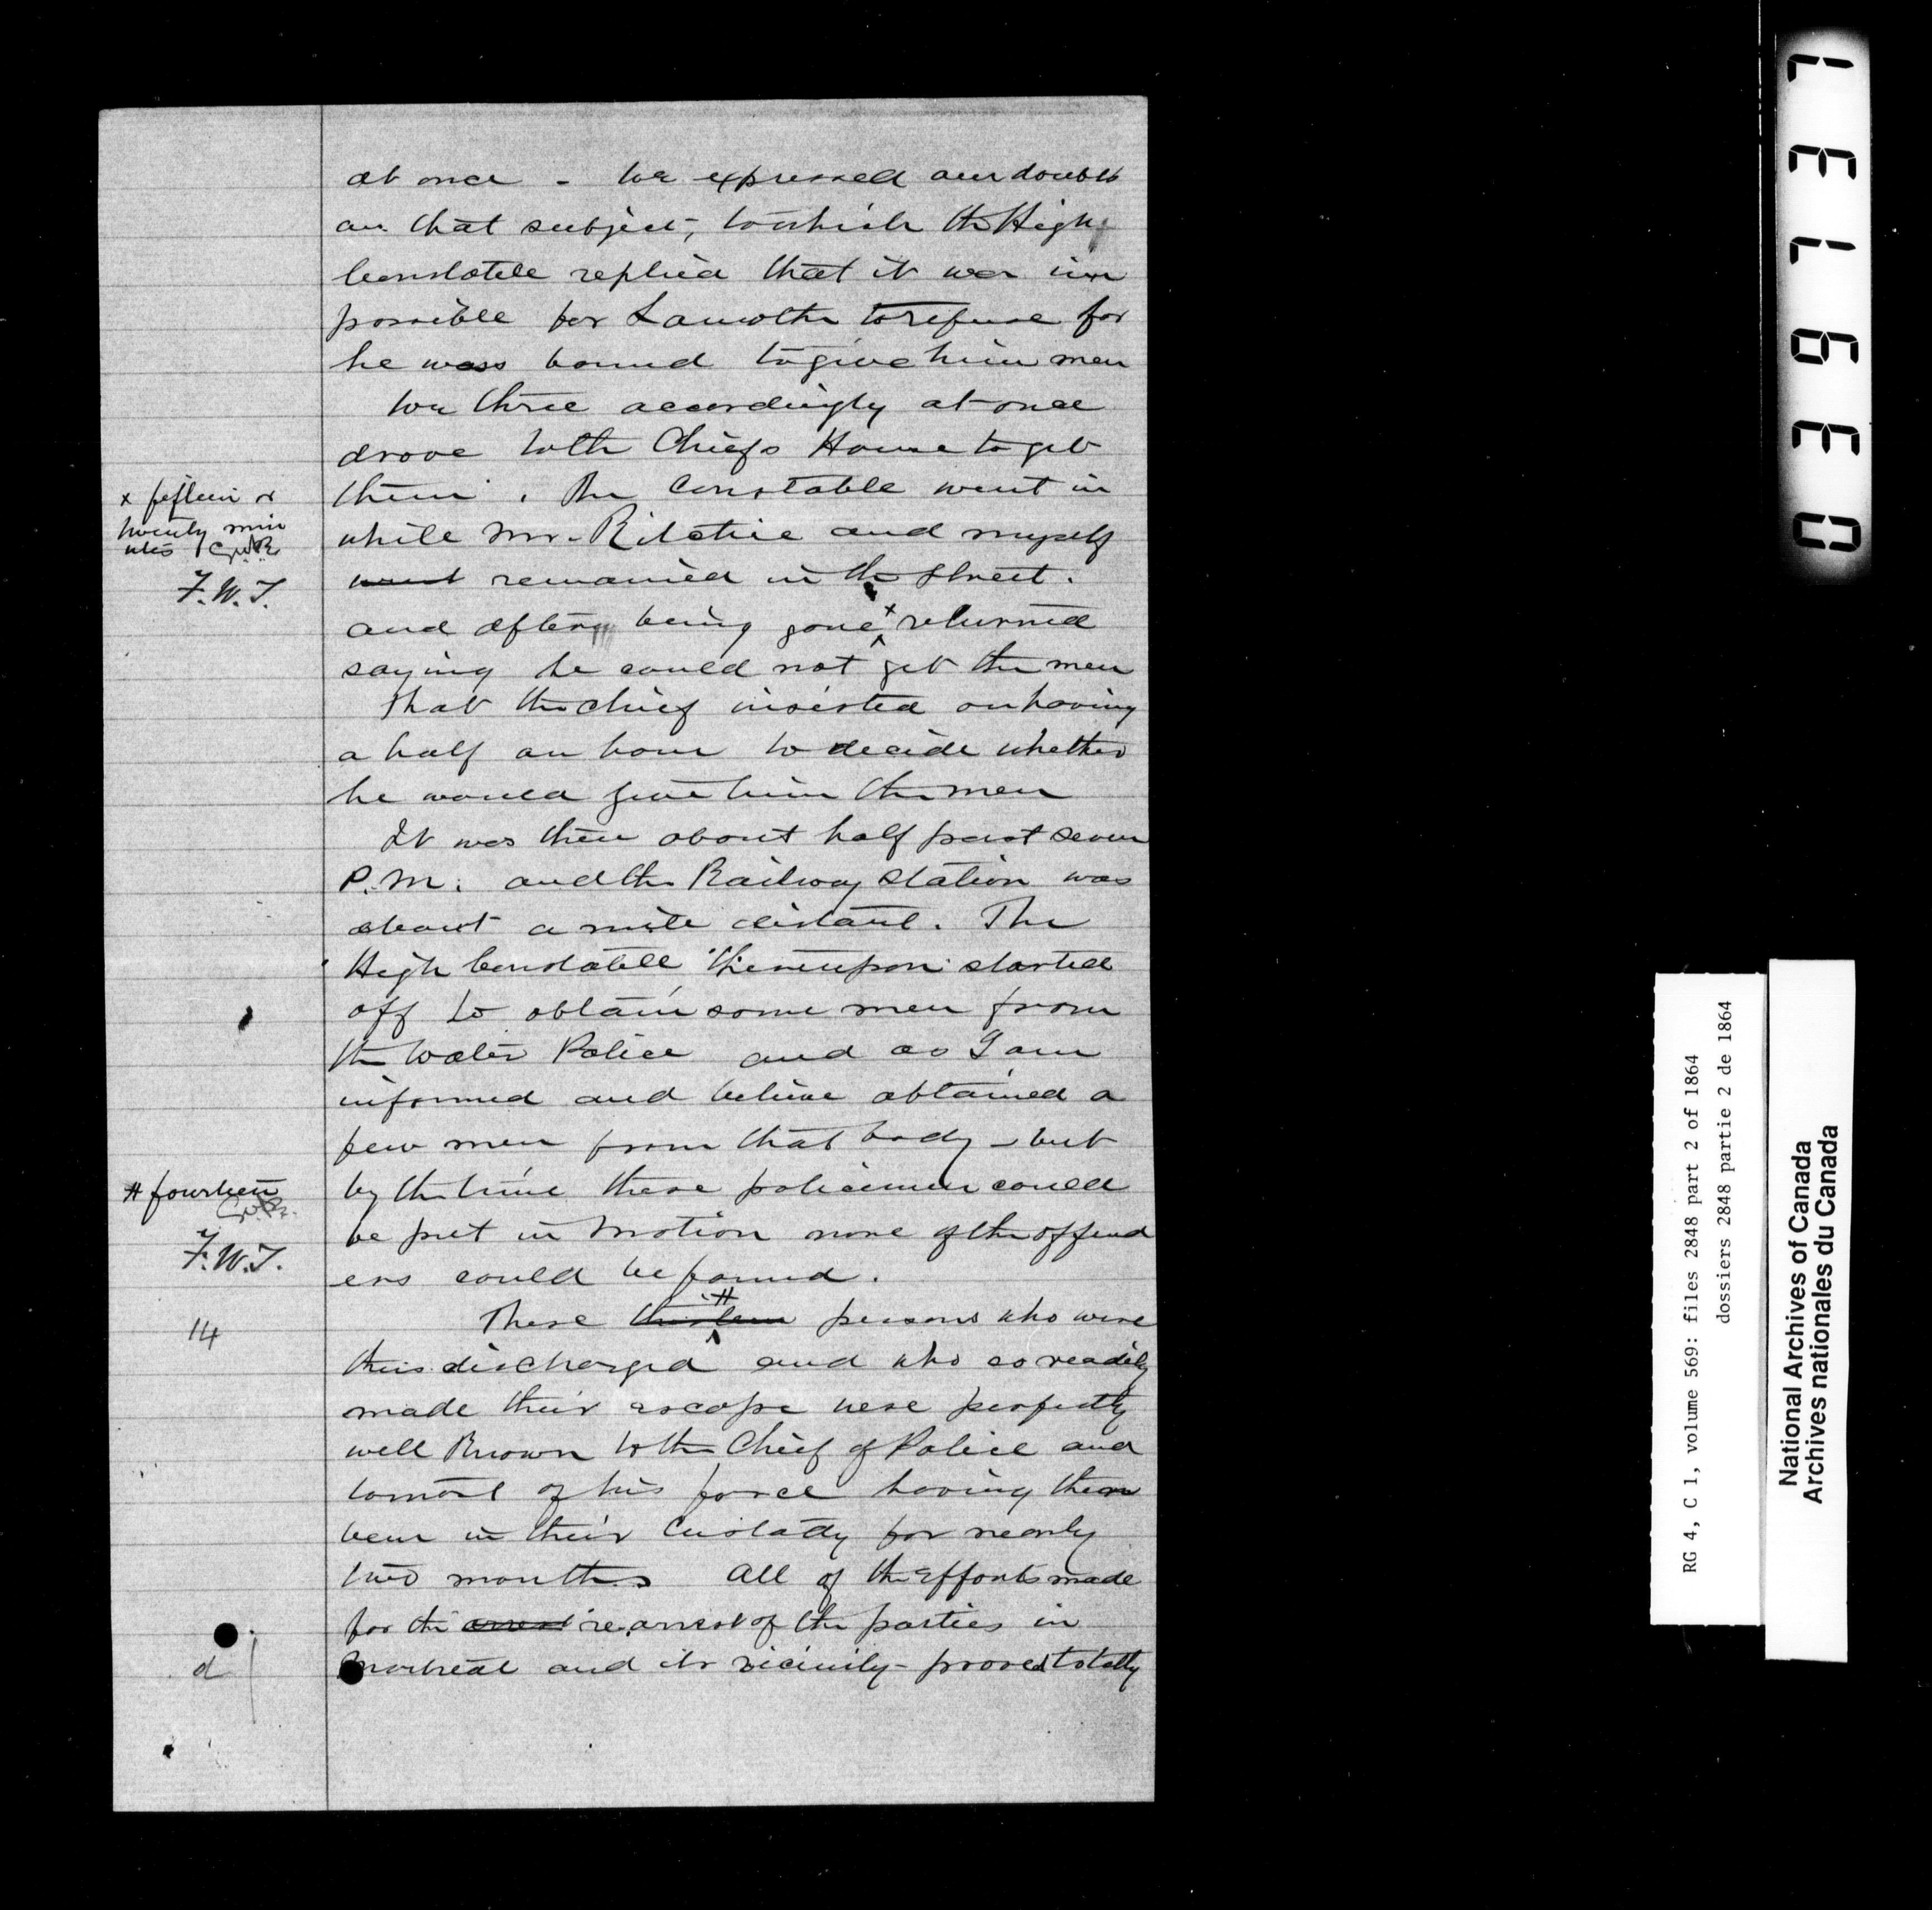 at once - We expressed our doubts
on that subject, to which the High
Constable replied that it was im
possible for Lamothe to refuse for
he was bound to give him men
We three accordingly at once
drove to the Chiefs House to get
them. The Constable went in
while Mr. Ritchie and myself
went remained in the street.
and after being gone x returned
saying he could not get the men
that the chief insisted on having
a half an hour to decide whether
he would give him the men
It was then about half past seven
P.M. and the Railway Station was
about a mile distant. The
High Constable thereupon started
off to obtain some men from
the Water Police and as I am
informed and believe obtained a
few men from that body - but
by the time these policemen could
be put in motion none of the offend
ers could be found.
These thirteen # persons who were
thus discharged and who so readily
made their escape were perfectly
well known to the Chief of Police and
to most of his force having then
been in their custody for nearly
two months All of the efforts made
for the arrest re,arrest of the parties in
Montreal and its vicinity - proved totally
x fifteen or
twenty min
utes
F.W.T.
# fourteen
F.W.T.
14
d
RG 4, C 1, volume 569: files 2848 part 2 of 1864
dossiers 2848 partie 2 de 1864
National Archives of Canada
Archives nationales du Canada